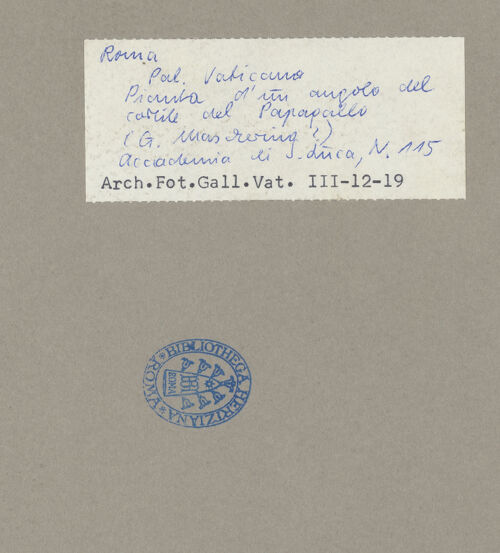 Roma
Pal. Vaticano
Pianta d'un angolo del
cortile del Papagallo
(G. Mascherino?)
Accademia di S. Luca, N. 115
Arch.Fot.Gall.Vat. III-12-19
BIBLIOTHECA HERTZIANA * ROMA *
ROMA